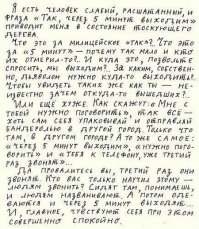 Я есть человек слабый, расшатанный, и
фраза «Так, через 5 минут выходим»
приводит меня в состояние тоскующего
дерева.
Что это за милицейские «так»? Что это
за «5 минут» – почему так мало и кто
их отмерил-то? И куда это, позвольте
спросить, мы выходим? За каким, собствен-
но, дьяволом нужно куда-то выходить?
Чтобы увидеть таких же как ты — не-
известно зачем откуда-то вышедших?
Или ещё хуже. Как скажут: «Мне с
тобой нужно поговорить», так все-
хоть сам себя упаковывай и отправляй
бандеролью в другой город. Только что
там, в другом городе? А то же самое:
«через 5 минут выходим», «нужно пого-
ворить» и «тебя к телефону, уже третий
раз звонят»..
Да провалитесь вы, третий раз они
звонят. Кто вас только научил этому —
людям звонить? Сидят там, понимаешь,
и людям названивают. А потом одева-
ются и через 5 минут выходят.
И, главное, чувствуют себя при этом
совершенно спокойно.